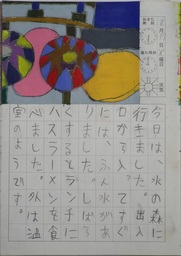 今日は、水の森に
行きました。出入
口から入ってすぐ
には、ふん水があ
りました。しばら
くするとランチに
ハスラーメンを食
べました。外は温
室のようです。